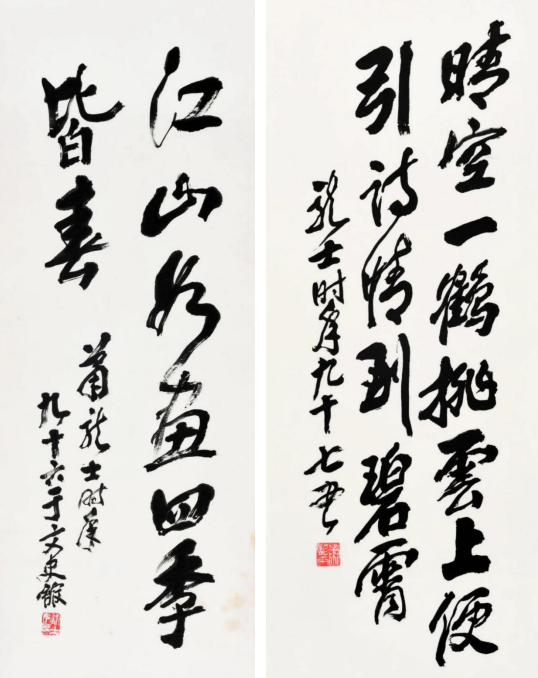 晴空一鶴排雲上便
引诗情到碧霄
龍士时年九十七
江山如畫四季
皆春
蕭龍士时年
九十六于文史館